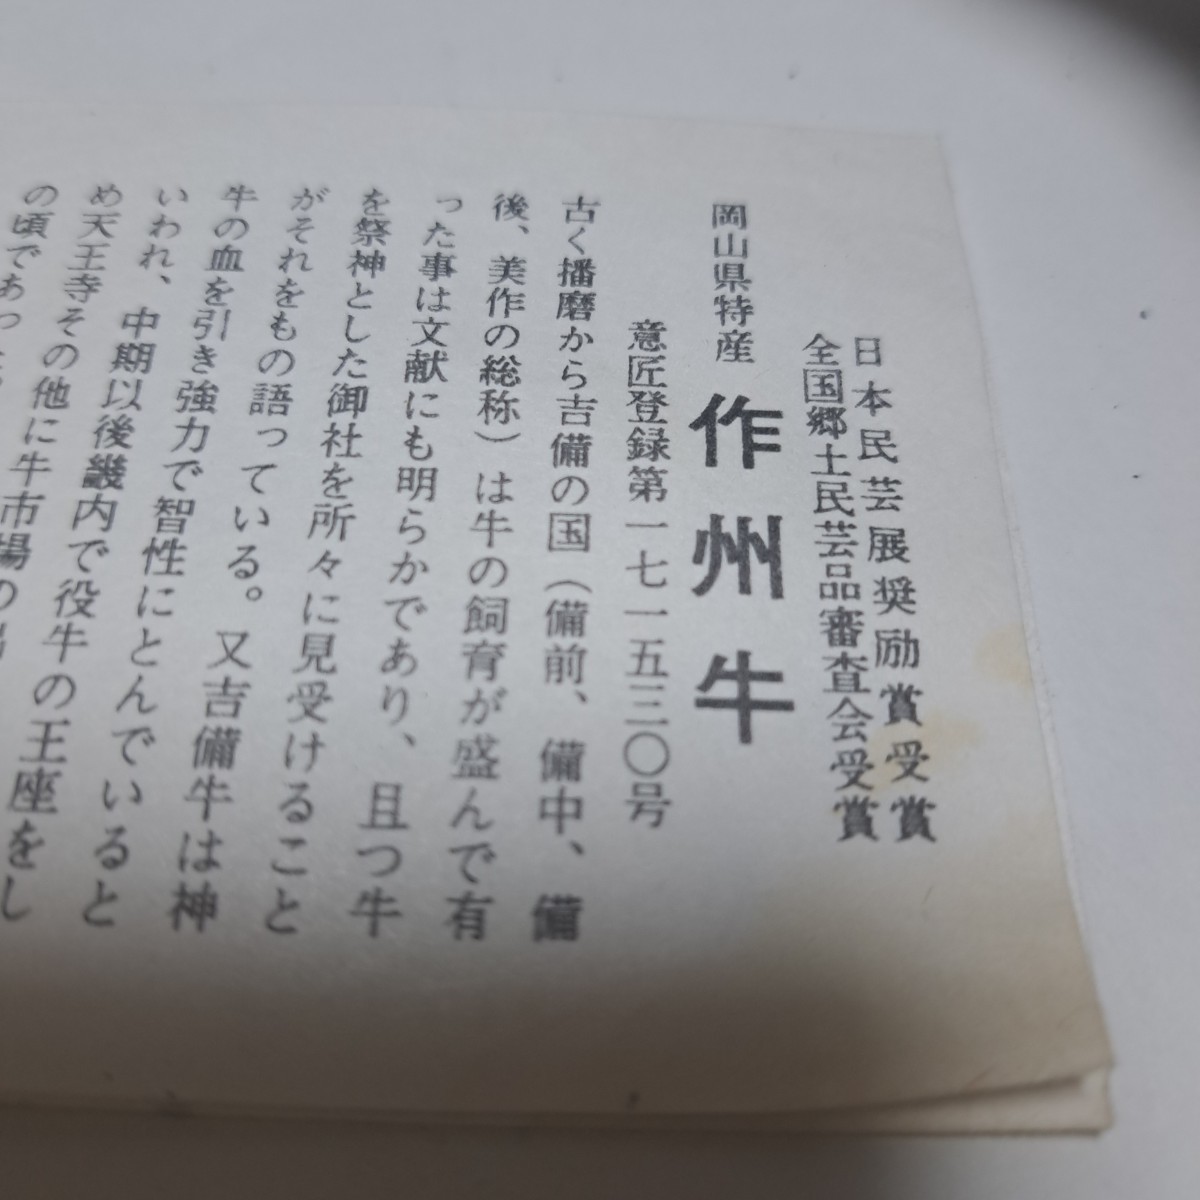 日本民芸展奨励賞受賞
全国郷土民芸品審査会受賞
岡山県特産 作州牛
意匠登録第一七一五三〇号
古く播磨から吉備の国（備前、備中、備
後、美作の総称）は牛の飼育が盛んで有
った事は文献にも明らかであり、且つ牛
を祭神とした御社を所々に見受けること
がそれをもの語っている。又吉備牛は神
牛の血を引き強力で智性にとんでいると
いわれ、中期以後畿内で役牛の王座をし
め天王寺その他に牛市場の
の頃であっ